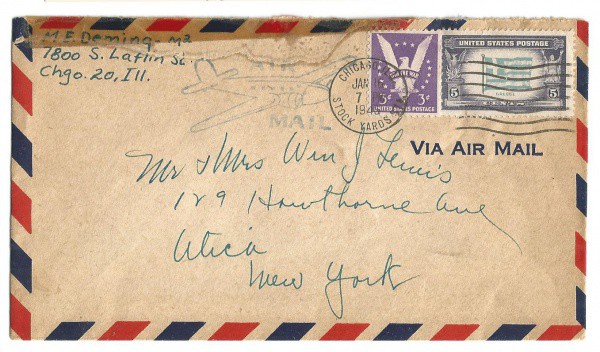 M.F. Deming - M2
7800 S. Laflin St.
Chgo. 20, Ill.
AIR
MAIL
CHICAGO
JAN
7
194
STOCK YARDS
WIN THE WAR
3¢ 3¢
UNITED STATES POSTAGE
UNITED STATES POSTAGE
GREECE
5 CENTS 5
VIA AIR MAIL
Mr & Mrs Wm J Lewis
129 Hawthorne Ave
Utica
New York